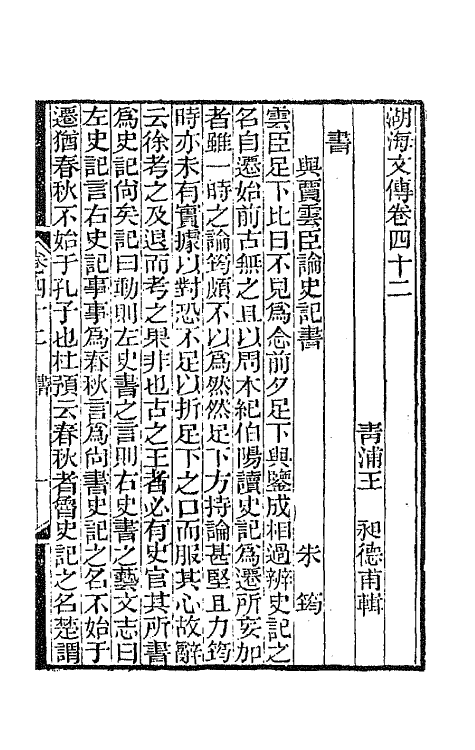 湖海文傳卷四十二
青浦王 昶德甫輯
書
與賈雲臣論史記書 朱 筠
雲臣足下比日不見爲念前夕足下與鑒成相過辨史記之
名自遷始前古無之且以周本紀伯陽讀史記爲遷所妄加
者雖一時之論筠頗不以爲然然足下方持論甚堅且力筠
時亦未有實據以對恐不足以折足下之口而服其心故辭
云徐考之及退而考之果非也古之王者必有史官其所書
爲史記尙矣記曰動則左史書之言則右史書之藝文志曰
左史記言右史記事事爲春秋言爲尙書史記之名不始于
遷猶春秋不始于孔子也杜預云春秋者魯史記之名楚謂
卷四十二 書 一